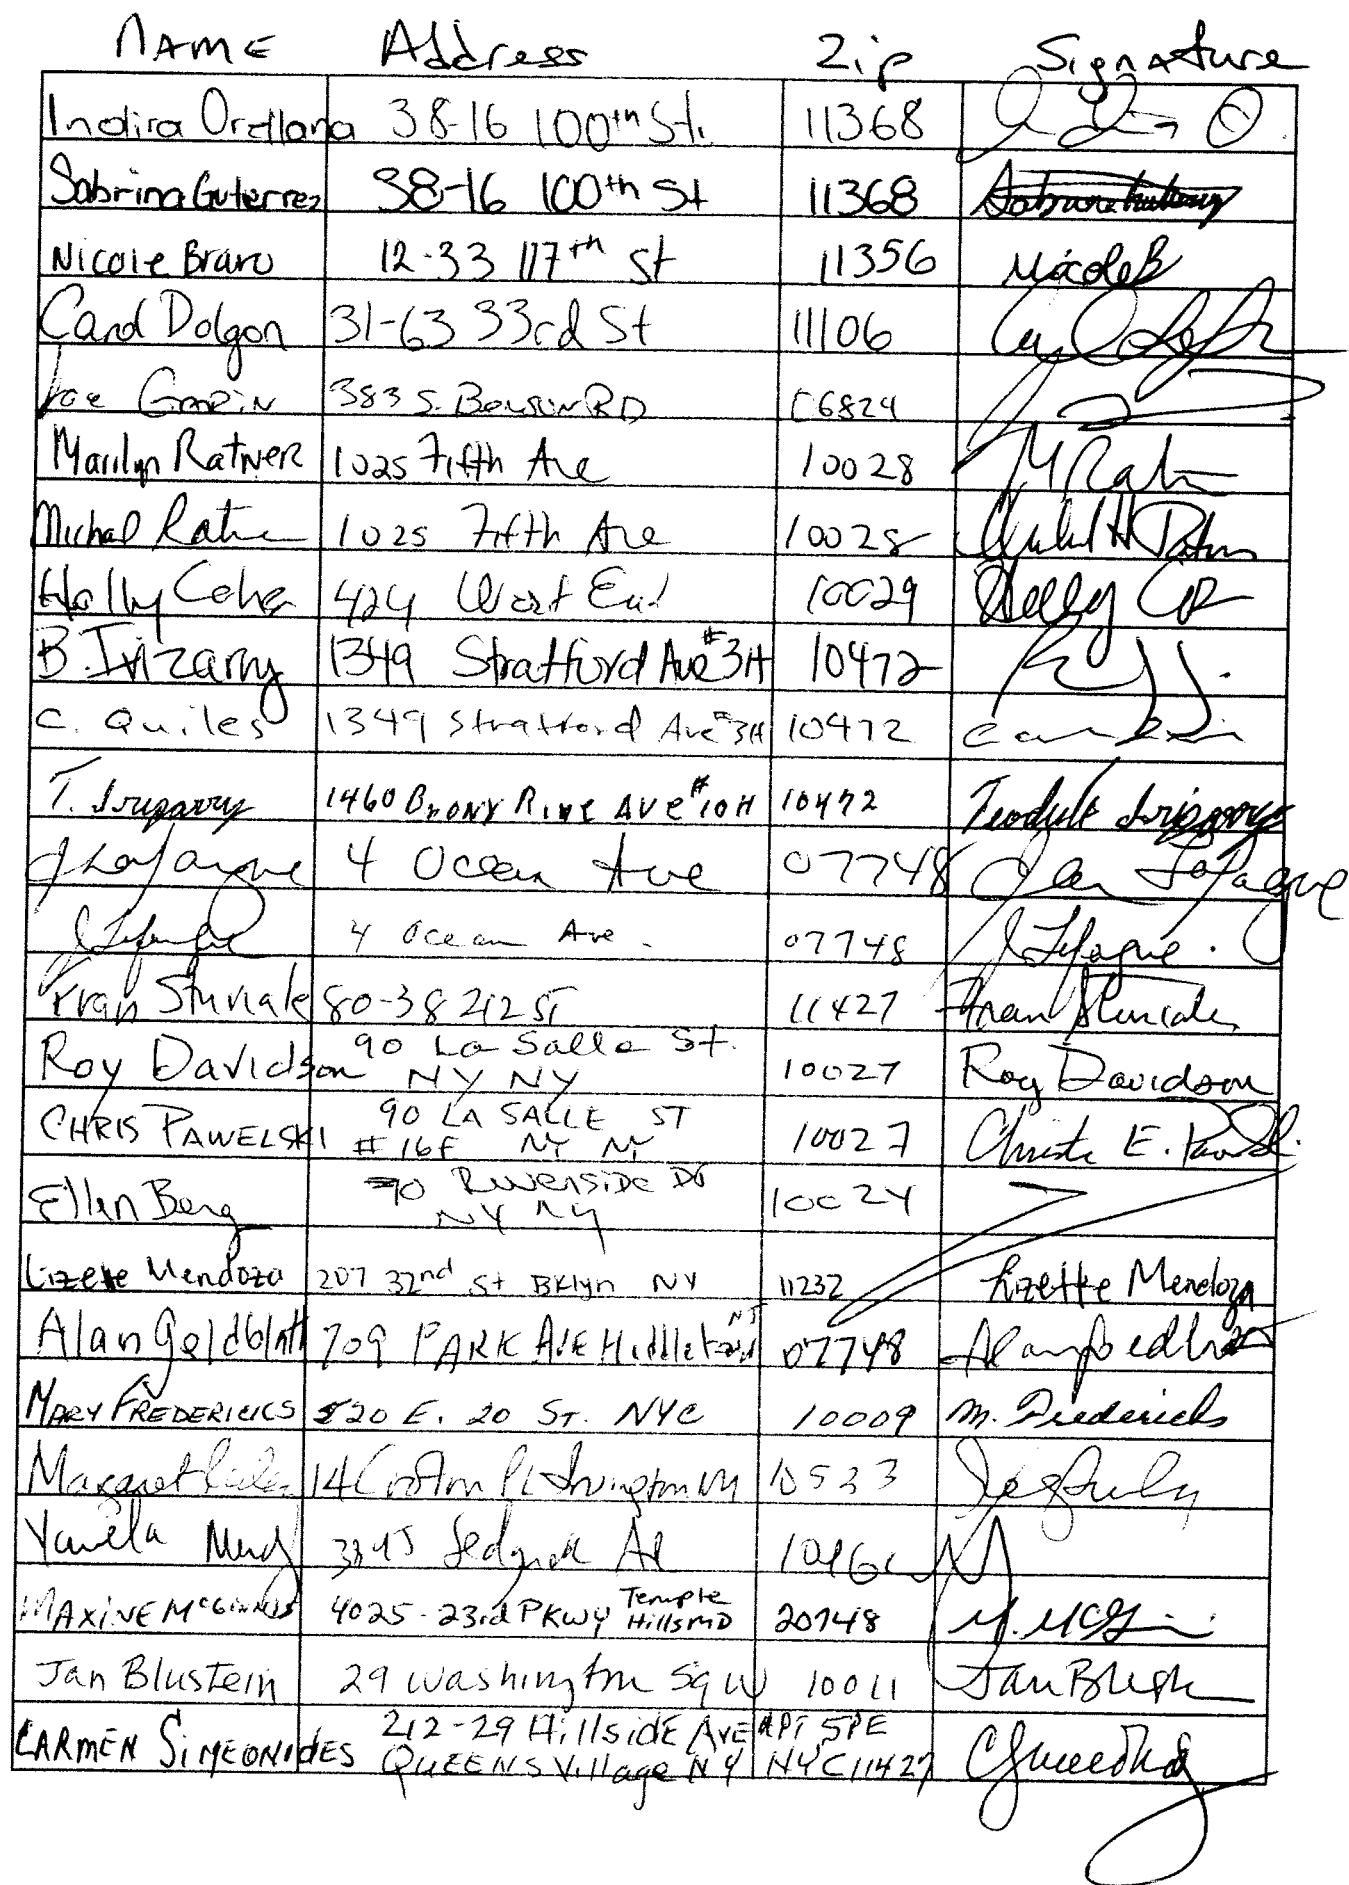 NAME Address Zip Signature
Indira Orellana 38-16 100th St. 11368
Sabrina Guterrez 38-16 100th St 11368
Nicole Bravo 12-33 117th St 11356 Nicole B
Carol Dolgon 31-63 33rd St 11106
Joe 383 S. RD 06824
Marilyn Ratner 1025 Fifth Ave 10028 M Ratner
Michael Ratner 1025 Fifth Ave 10028
Holly Cohen 424 West End 10029 Holly
B. Irizarry 1349 Stratford Ave #3H 10472
C. Quiles 1349 Stratford Ave #3H 10472
T. Irizarry 1460 Bronx River Ave #10H 10472 Irizarry
J LaFargue 4 Ocean Ave 07748 LaFargue
4 Ocean Ave. 07748
Fran Sturiale 80-38 212 ST 11427 Fran Sturiale
Roy Davidson 90 La Salle St. 10027 Roy Davidson
NY NY
CHRIS PAWELSKI 90 LA SALLE ST 10027 E.
#16F NY NY
Ellen Berg 90 Riverside Dr 10024
NY NY
Lizette Mendoza 207 32nd St Bklyn NY 11232 Lizette Mendoza
NJ
Alan Goldblatt 709 PARK AVE Middletown 07748
MARY FREDERICKS 520 E. 20 ST. NYC 10009 M. Fredericks
Margaret 14 Croton Pl Irvington NY 10533
3845 Sedgwick
Temple
MAXINE McGinnis 4025-23rd PKWY Hills MD 20748
Jan Blustein 29 Washington Sq W 10011 Jan
212-29 Hillside AVE APT 5PE
CARMEN SIMEONIDES QUEENS Village NY NYC 11427